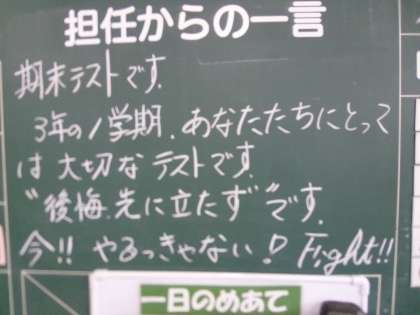 担任からの一言
期末テストです.
3年の1学期.あなたたちにとって
は大切なテストです.
"後悔先に立たず"です.
今!!やるっきゃない!Fight!!
一日のめあて